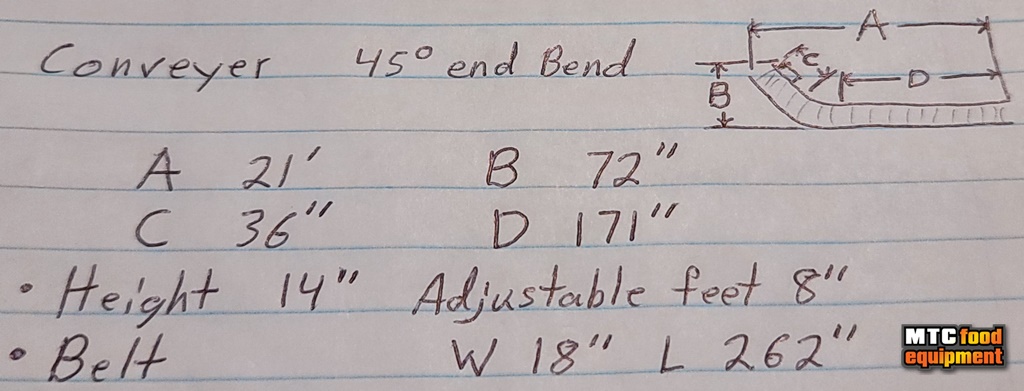 Conveyer 45° end Bend
A
C
B
D
A 21' B 72"
C 36" D 171"
• Height 14" Adjustable feet 8"
• Belt W 18" L 262"
MTC food
equipment